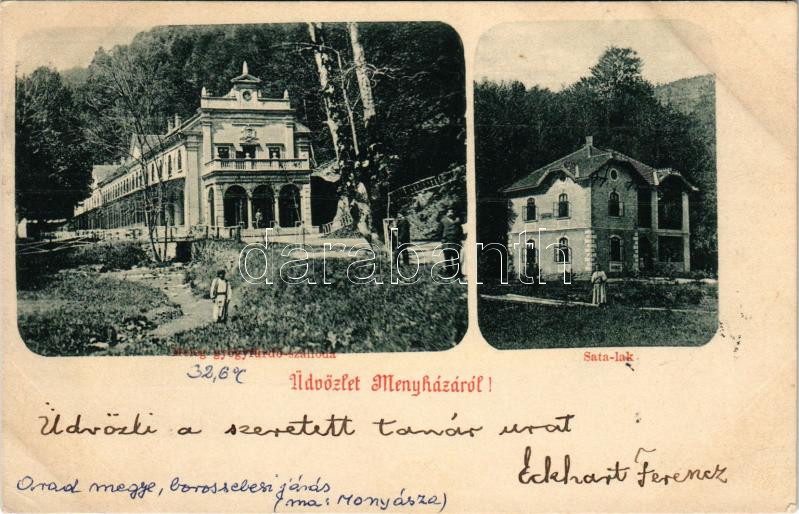 Meleg gyógyfürdő-szálloda
Sata-lak
32,6°C
Üdvözlet Menyházáról!
Üdvözli a szeretett tanár urat
Eckhart Ferencz
Arad megye, borossebesi járás
(ma: Monyásza)
darabanth